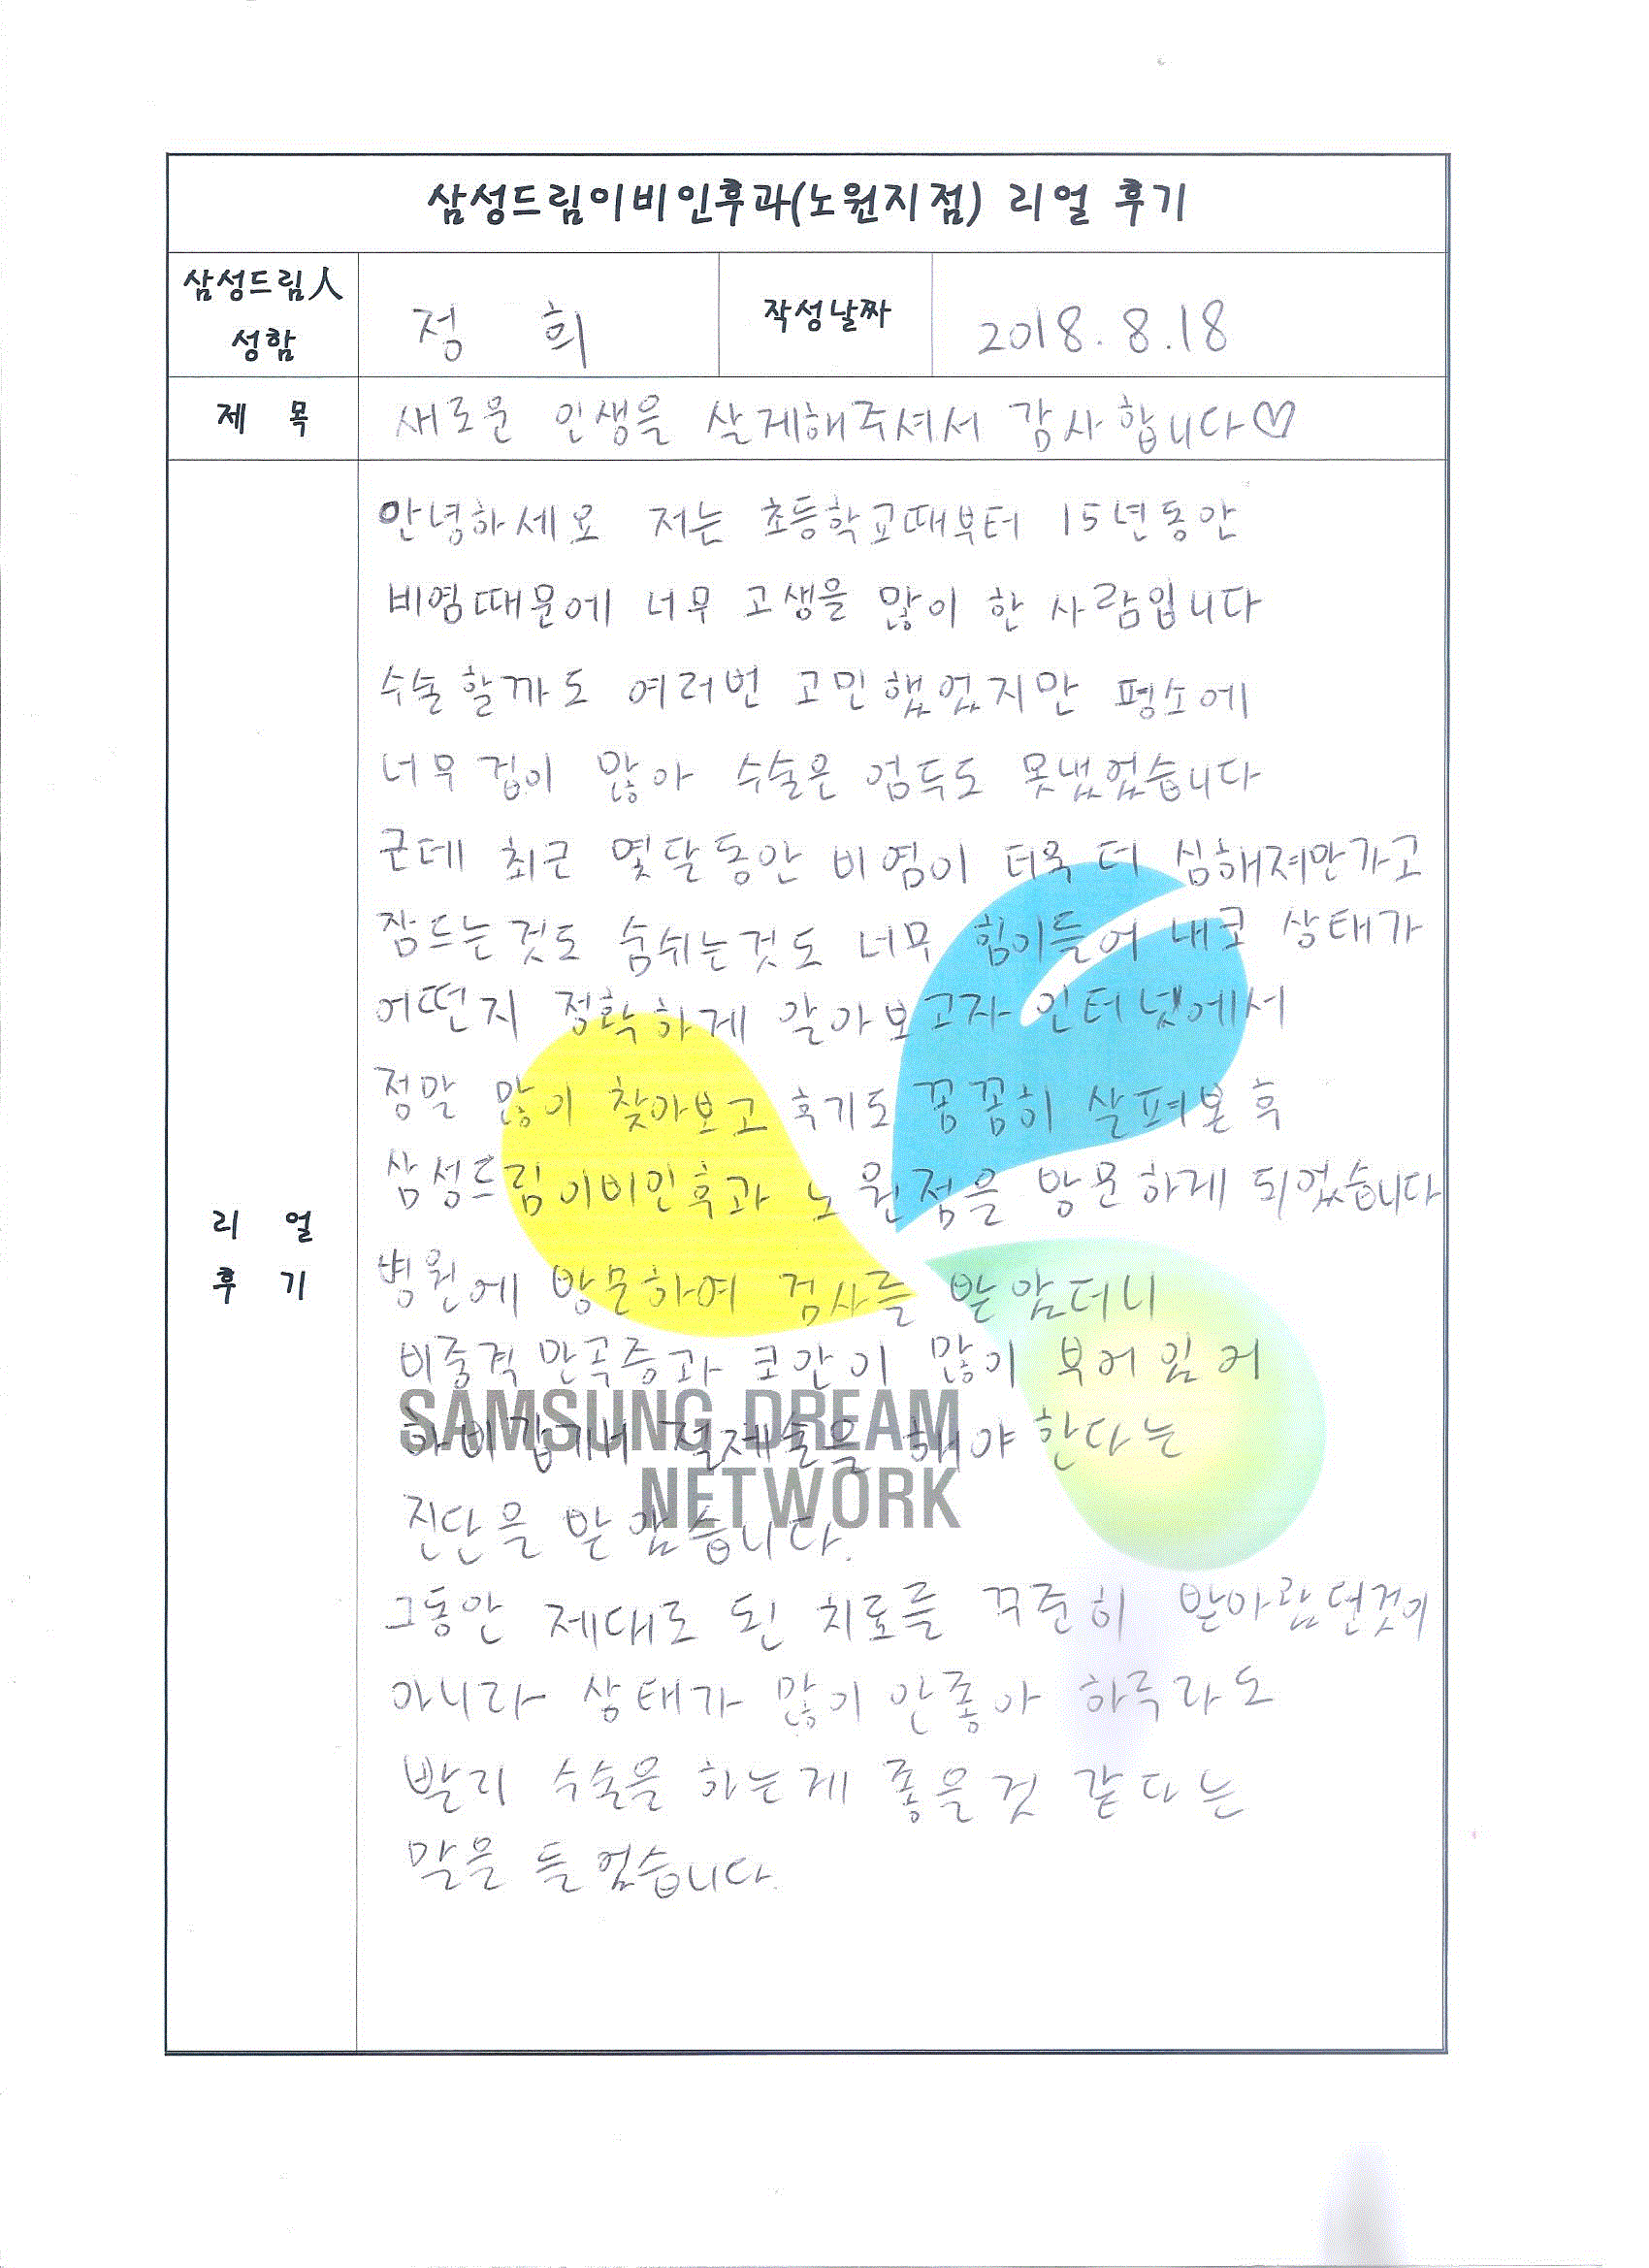 삼성드림이비인후과(노원지점) 리얼 후기
삼성드림人 성함
정 희
작성날짜
2018. 8. 18
제 목
새로운 인생을 살게해주셔서 감사합니다♡
리 얼 후 기
안녕하세요 저는 초등학교때부터 15년동안
비염때문에 너무 고생을 많이 한 사람입니다
수술할까도 여러번 고민했었지만 평소에
너무 겁이 많아 수술은 엄두도 못냈었습니다
근데 최근 몇달동안 비염이 더욱 더 심해져만가고
잠드는것도 숨쉬는것도 너무 힘이들어 내코 상태가
어떤지 정확하게 알아보고자 인터넷에서
정말 많이 찾아보고 후기도 꼼꼼히 살펴본 후
삼성드림이비인후과 노원점을 방문하게 되었습니다
병원에 방문하여 검사를 받았더니
비중격 만곡증과 코안이 많이 부어있어
하비갑개 절제술을 해야한다는
진단을 받았습니다.
그동안 제대로 된 치료를 꾸준히 받아왔던것이
아니라 상태가 많이 안좋아 하루라도
빨리 수술을 하는게 좋을것 같다는
말을 들었습니다.
SAMSUNG DREAM
NETWORK